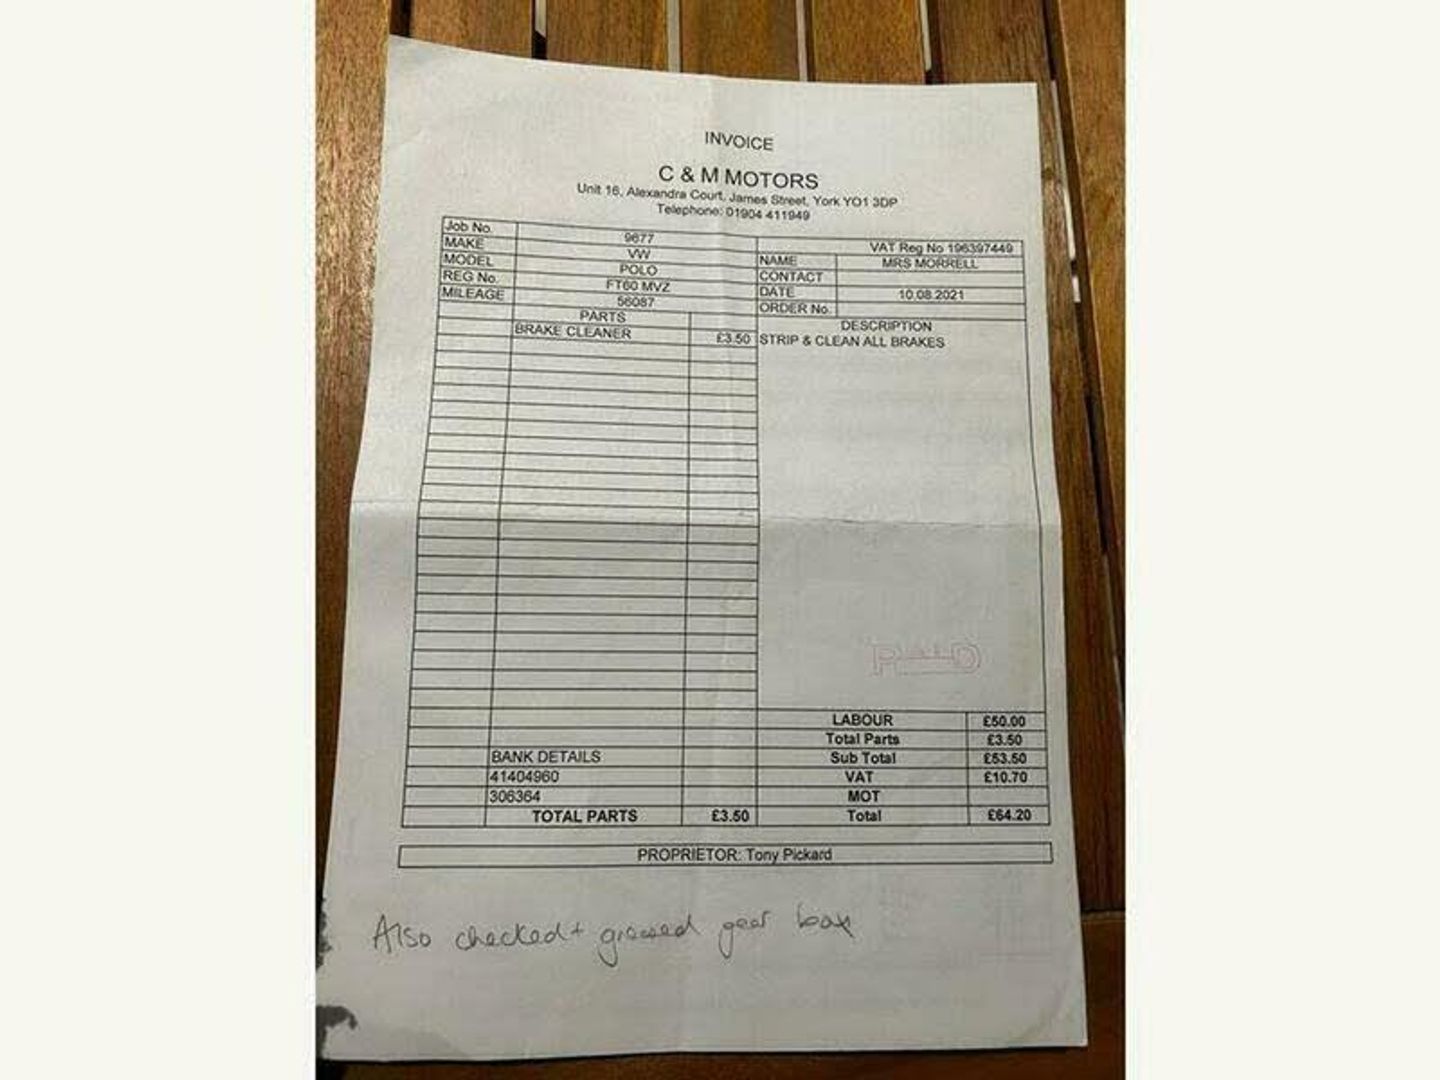 INVOICE
C & M MOTORS
Unit 16, Alexandra Court, James Street, York YO1 3DP
Telephone: 01904 411949
Job No. 9677 VAT Reg No 196397449
MAKE VW NAME MRS MORRELL
MODEL POLO CONTACT
REG No. FT60 MVZ DATE 10.08.2021
MILEAGE 56087 ORDER No.
PARTS DESCRIPTION
BRAKE CLEANER £3.50 STRIP & CLEAN ALL BRAKES
PAID
LABOUR £50.00
Total Parts £3.50
BANK DETAILS Sub Total £53.50
41404960 VAT £10.70
306364 MOT
TOTAL PARTS £3.50 Total £64.20
PROPRIETOR: Tony Pickard
Also checked + greased gear box